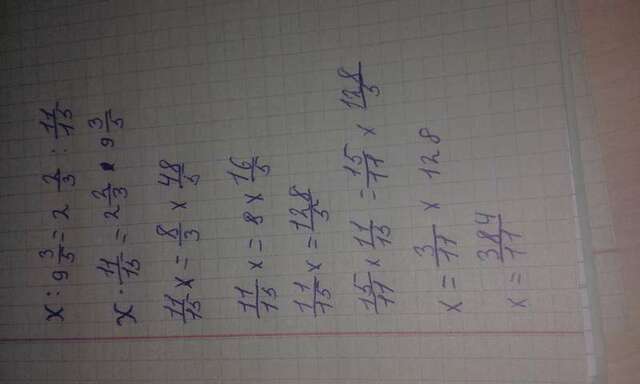 x : 9 3/5 = 2 2/3 : 11/15
x · 11/15 = 2 2/3 · 9 3/5
11/15 x = 8/3 × 48/5
11/15 x = 8 × 16/5
11/15 x = 128/5
15/11 × 11/15 = 15/11 × 128/5
x = 3/11 × 128
x = 384/11